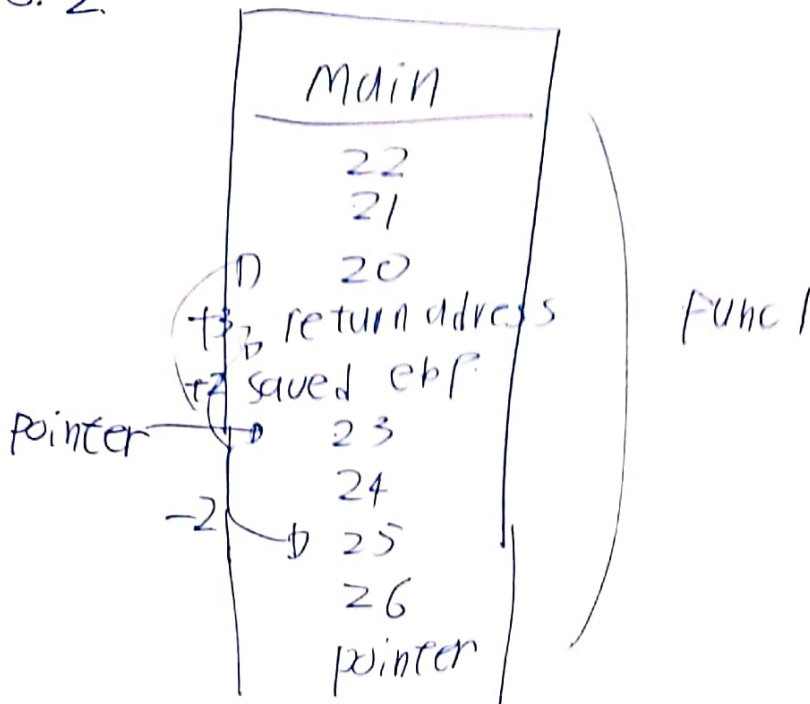 Main
22
21
20
+3 return adress
Func1
+2 saved ebp
pointer 23
24
-2 25
26
pointer